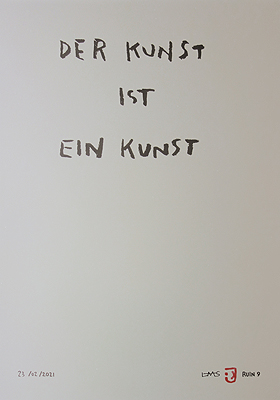 DER KUNST
IST
EIN KUNST
23/02/2021 LMS RUIN 9